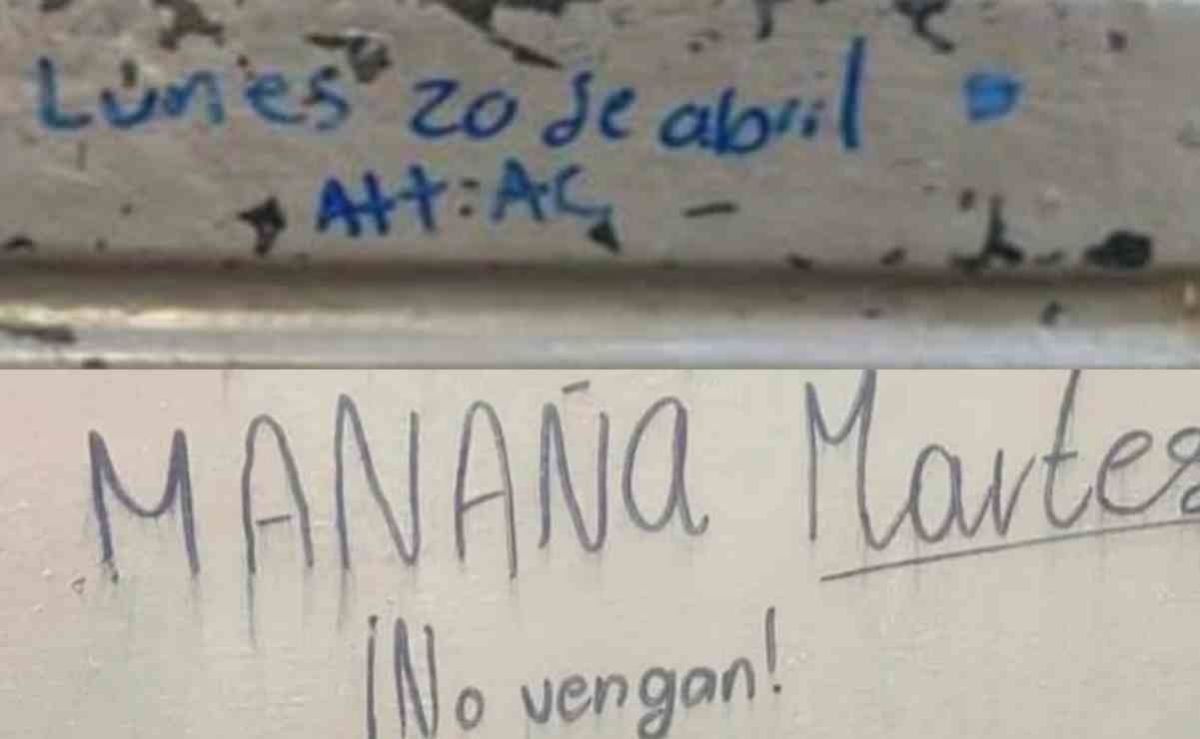 Lunes 20 de abril
Att: A.C
MAÑANA Martes
¡No vengan!